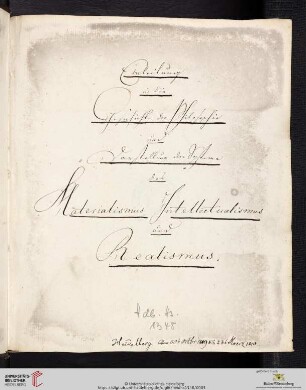 Einleitung
in die
Geschichte der Philosophie
und
Darstellung der Systeme
des
Materialismus Intellectualismus
und
Realismus.
Heidelberg
UNIVERSITÄTS-
BIBLIOTHEK
HEIDELBERG
© Universitätsbibliothek Heidelberg